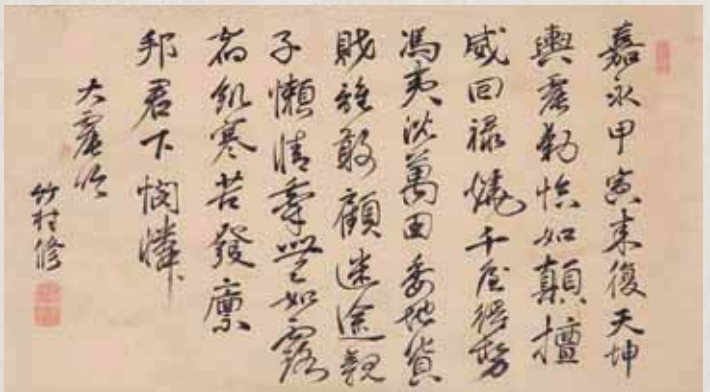 嘉永甲寅来復天坤
輿震動恰如顛擅
威回禄燒千屋得勢
馮夷沈萬田委地貨
財誰敢顧迷途親
子懶情牽無如露
宿飢寒苦發廩
邦君下憫憐
大震吟
竹村修